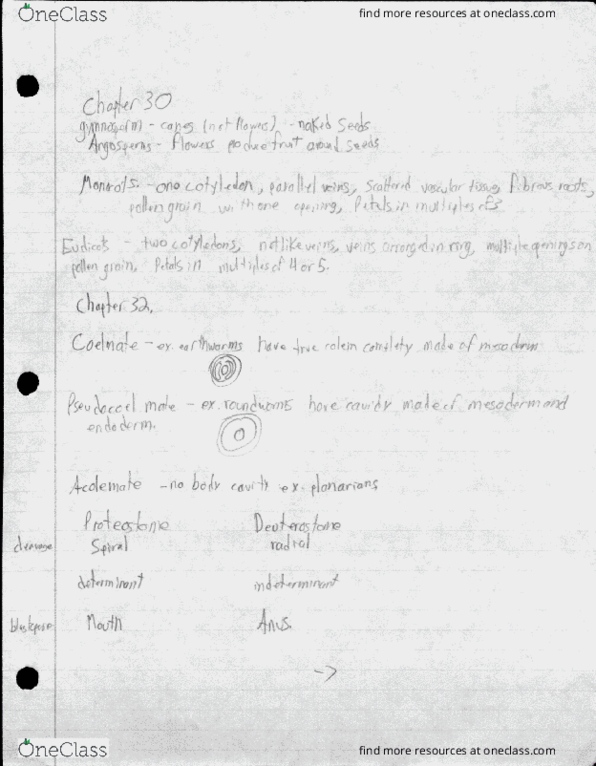 OneClass
find more resources at oneclass.com
Chapter 30
gymnosperm - cones (not flowers) - naked seeds
Angosperms - flowers produce fruit around seeds
Monocots: - one cotyledon, parallel veins, scattered vascular tissue, fibrous roots,
pollen grain with one opening, Petals in multiples of 3
Eudicots - two cotyledons, netlike veins, veins arranged in ring, multiple openings on
pollen grain, Petals in multiples of 4 or 5.
Chapter 32.
Coelmate - ex. earthworms have true made of mesoderm
Pseudocoel mate - ex. roundworms have cavidy made of mesoderm and
endoderm.
Acolemate - no body cavity ex. planarians
Proteostome Deuterostome
cleavage Spiral radial
determinant indeterminant
Mouth Anus.
->
OneClass
find more resources at oneclass.com